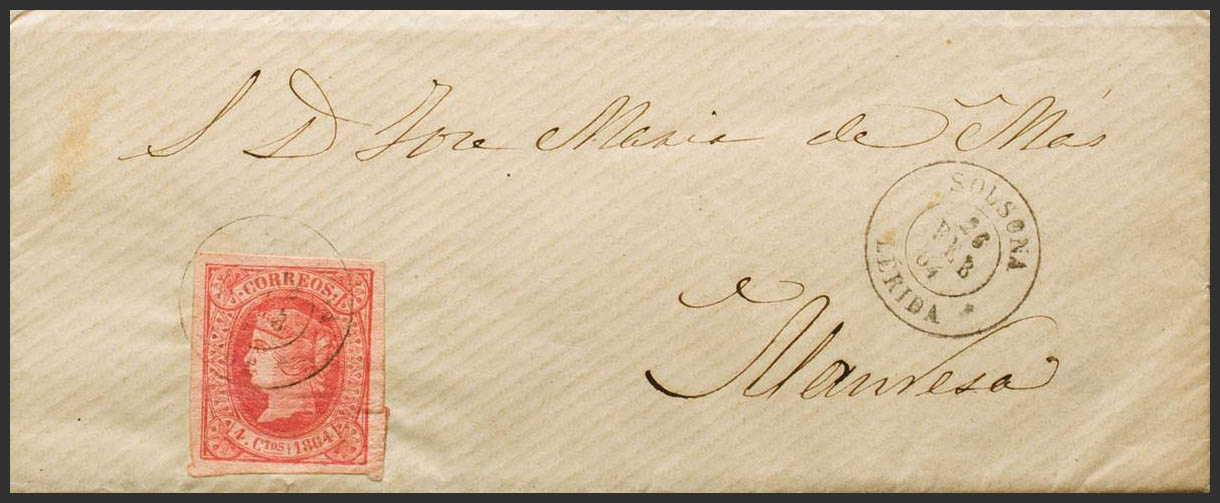 S D Jose Maria de Más
SOLSONA
26
FEB
64
LERIDA
Manresa
CORREOS
4 CTOS 1864